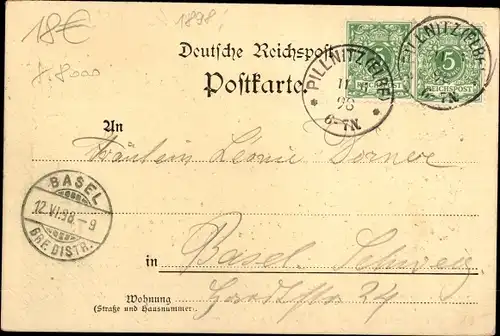 18€
1898
A. 8000
Deutsche Reichspost
Postkarte.
PILLNITZ (ELBE)
11
98
6-7N.
PILLNITZ (ELBE)
98
6-7N.
5
REICHSPOST
REICHSPOST
An
Fräulein Leonie Dorner
BASEL
12.VI.98.-9
BRF. DISTR.
in Basel. Schweiz
Wohnung
(Straße und Hausnummer)
24